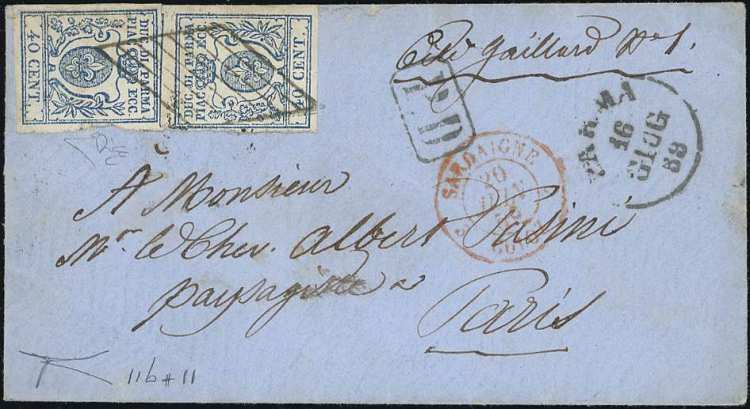 40 CENT.
DUC. DI PARMA
PIAC. ECC.
DUC. DI PARMA
PIAC. ECC.
CENT.
Cité Gaillard No 1.
P.D.
PARMA
16
GIUG
58
SARDAIGNE
20
JUIN
A Monsieur
Mr. le Chev. Albert Pasini
paysagiste
Paris
11b#11